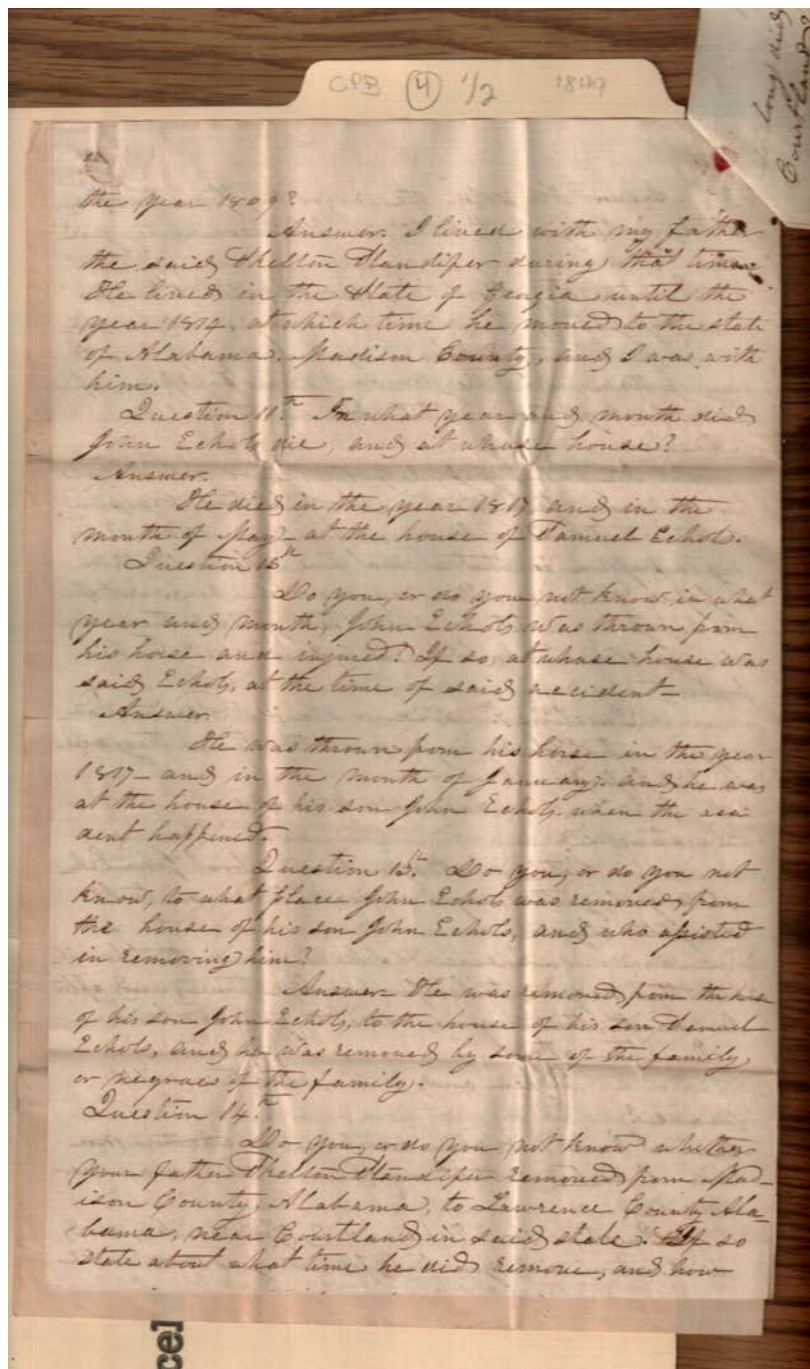 CPB 4 1/2 1849
long did
Courtland
the year 1809?
Answer. I lived with my father
the said Shelton Standifer during that time.
He lived in the State of Georgia until the
year 1814, at which time he moved to the state
of Alabama, Madison County, and I was with
him.
Question 11th. In what year and month did
John Echols die, and at whose house?
Answer.
He died in the year 1817 and in the
month of May - at the house of Samuel Echols.
Question 12th
Do you, or do you not know, in what
year and month, John Echols was thrown from
his horse and injured? If so, at whose house was
said Echols, at the time of said accident -
Answer.
He was thrown from his horse in the year
1817 - and in the month of January. and he was
at the house of his son John Echols when the acci
dent happened.
Question 13th. Do you, or do you not
know, to what place John Echols was removed from
the house of his son John Echols, and who assisted
in removing him?
Answer - He was removed from the house
of his son John Echols, to the house of his son Samuel
Echols, and he was removed by some of the family
or negroes of the family.
Question 14th
Do you, or do you not know whether
your father Shelton Standifer removed from Mad-
ison County, Alabama, to Lawrence County Ala-
bama, near Courtland in said state. If so
state about what time he did remove, and how
cel